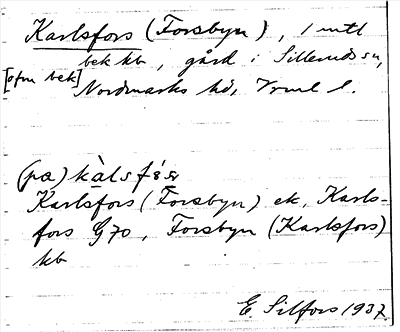 Karlsfors (Forsbyn), 1 mtl
bek kb, gård i Sillerud sn,
[ofm bek] Nordmarks hd, Vrml l.
(pa) kàlsfór
Karlsfors (Forsbyn) ek, Karls-
fors G70, Forsbyn (Karlsfors)
kb
E. Silfors 1937.